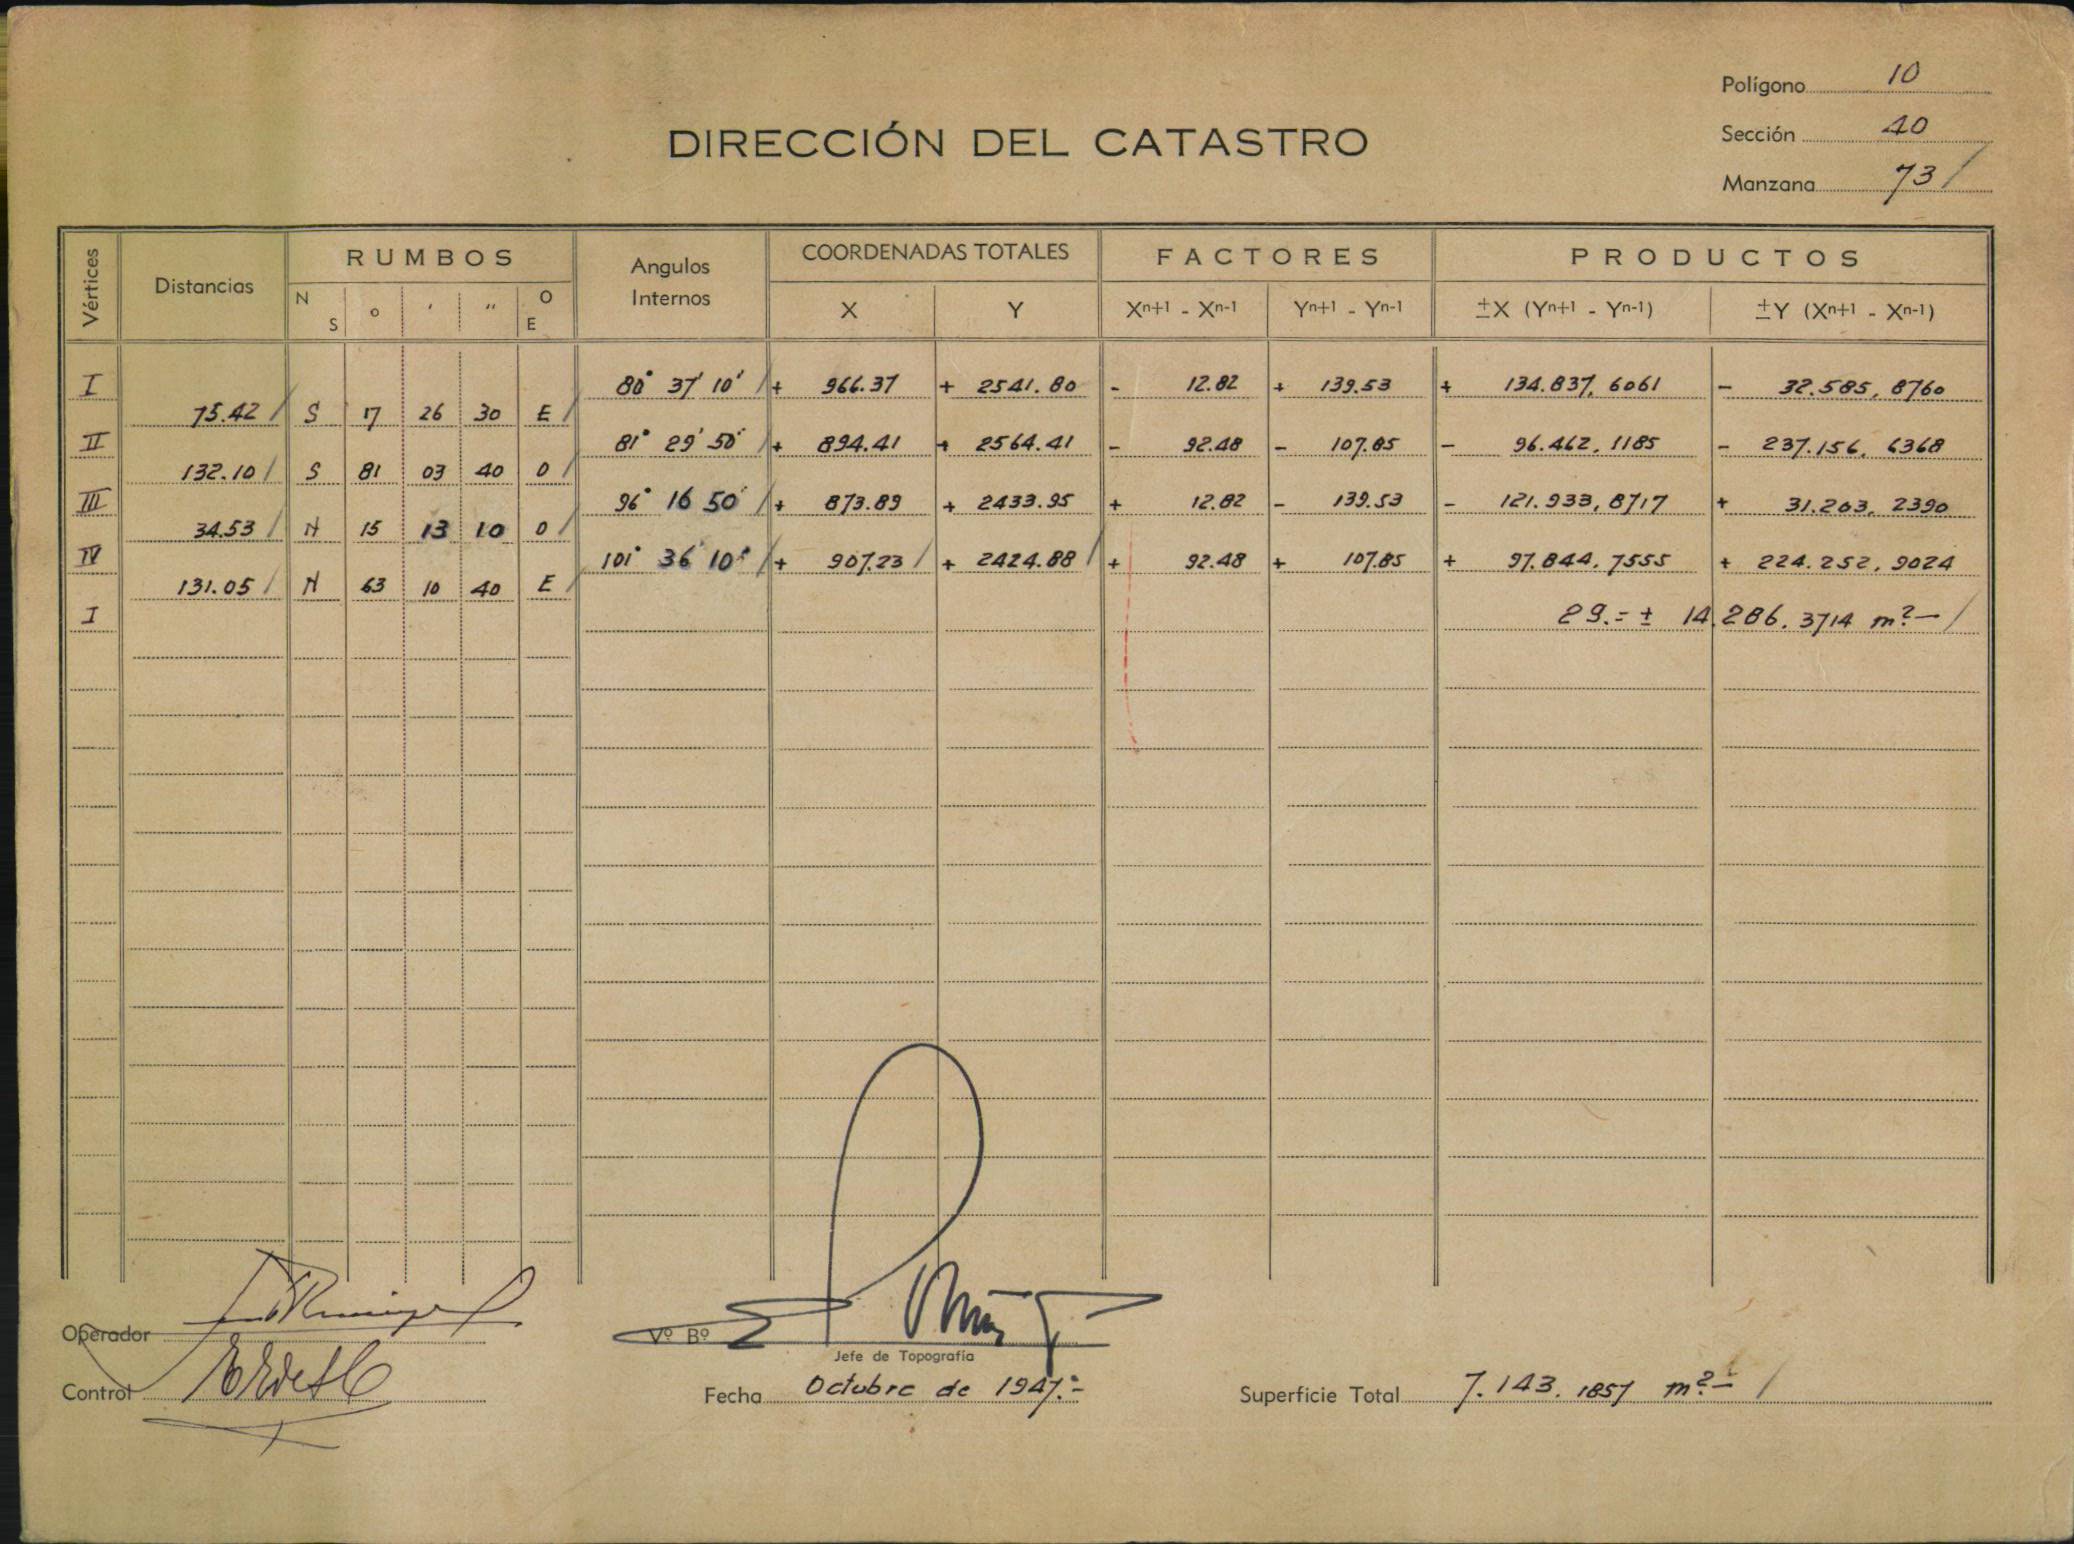 Polígono 10
DIRECCIÓN DEL CATASTRO
Sección 40
Manzana 73 /
Vértices Distancias RUMBOS Angulos Internos COORDENADAS TOTALES FACTORES PRODUCTOS
N S ° ' " O E X Y Xn+1 - Xn-1 Yn+1 - Yn-1 ±X (Yn+1 - Yn-1) ±Y (Xn+1 - Xn-1)
I 80° 37' 10' / + 966.37 + 2541.80 - 12.82 + 139.53 + 134.837, 6061 - 32.585, 8760
75.42 / S 17 26 30 E /
II 81° 29' 50' / + 894.41 + 2564.41 - 92.48 - 107.85 - 96.462, 1185 - 237.156, 6368
132.10 / S 81 03 40 O /
III 96° 16 50' / + 873.89 + 2433.95 + 12.82 - 139.53 - 121.933, 8717 + 31.203, 2390
34.53 / N 15 13 10 O /
IV 101° 36' 10" / + 907.23 / + 2424.88 / + 92.48 + 107.85 + 97.844, 7555 + 224.252, 9024
131.05 / N 63 10 40 E /
I 2S.= ± 14.286. 3714 m² — /
Operador
Vº Bº
Jefe de Topografía
Control
Fecha Octubre de 1947.-
Superficie Total 7.143. 1857 m² — /